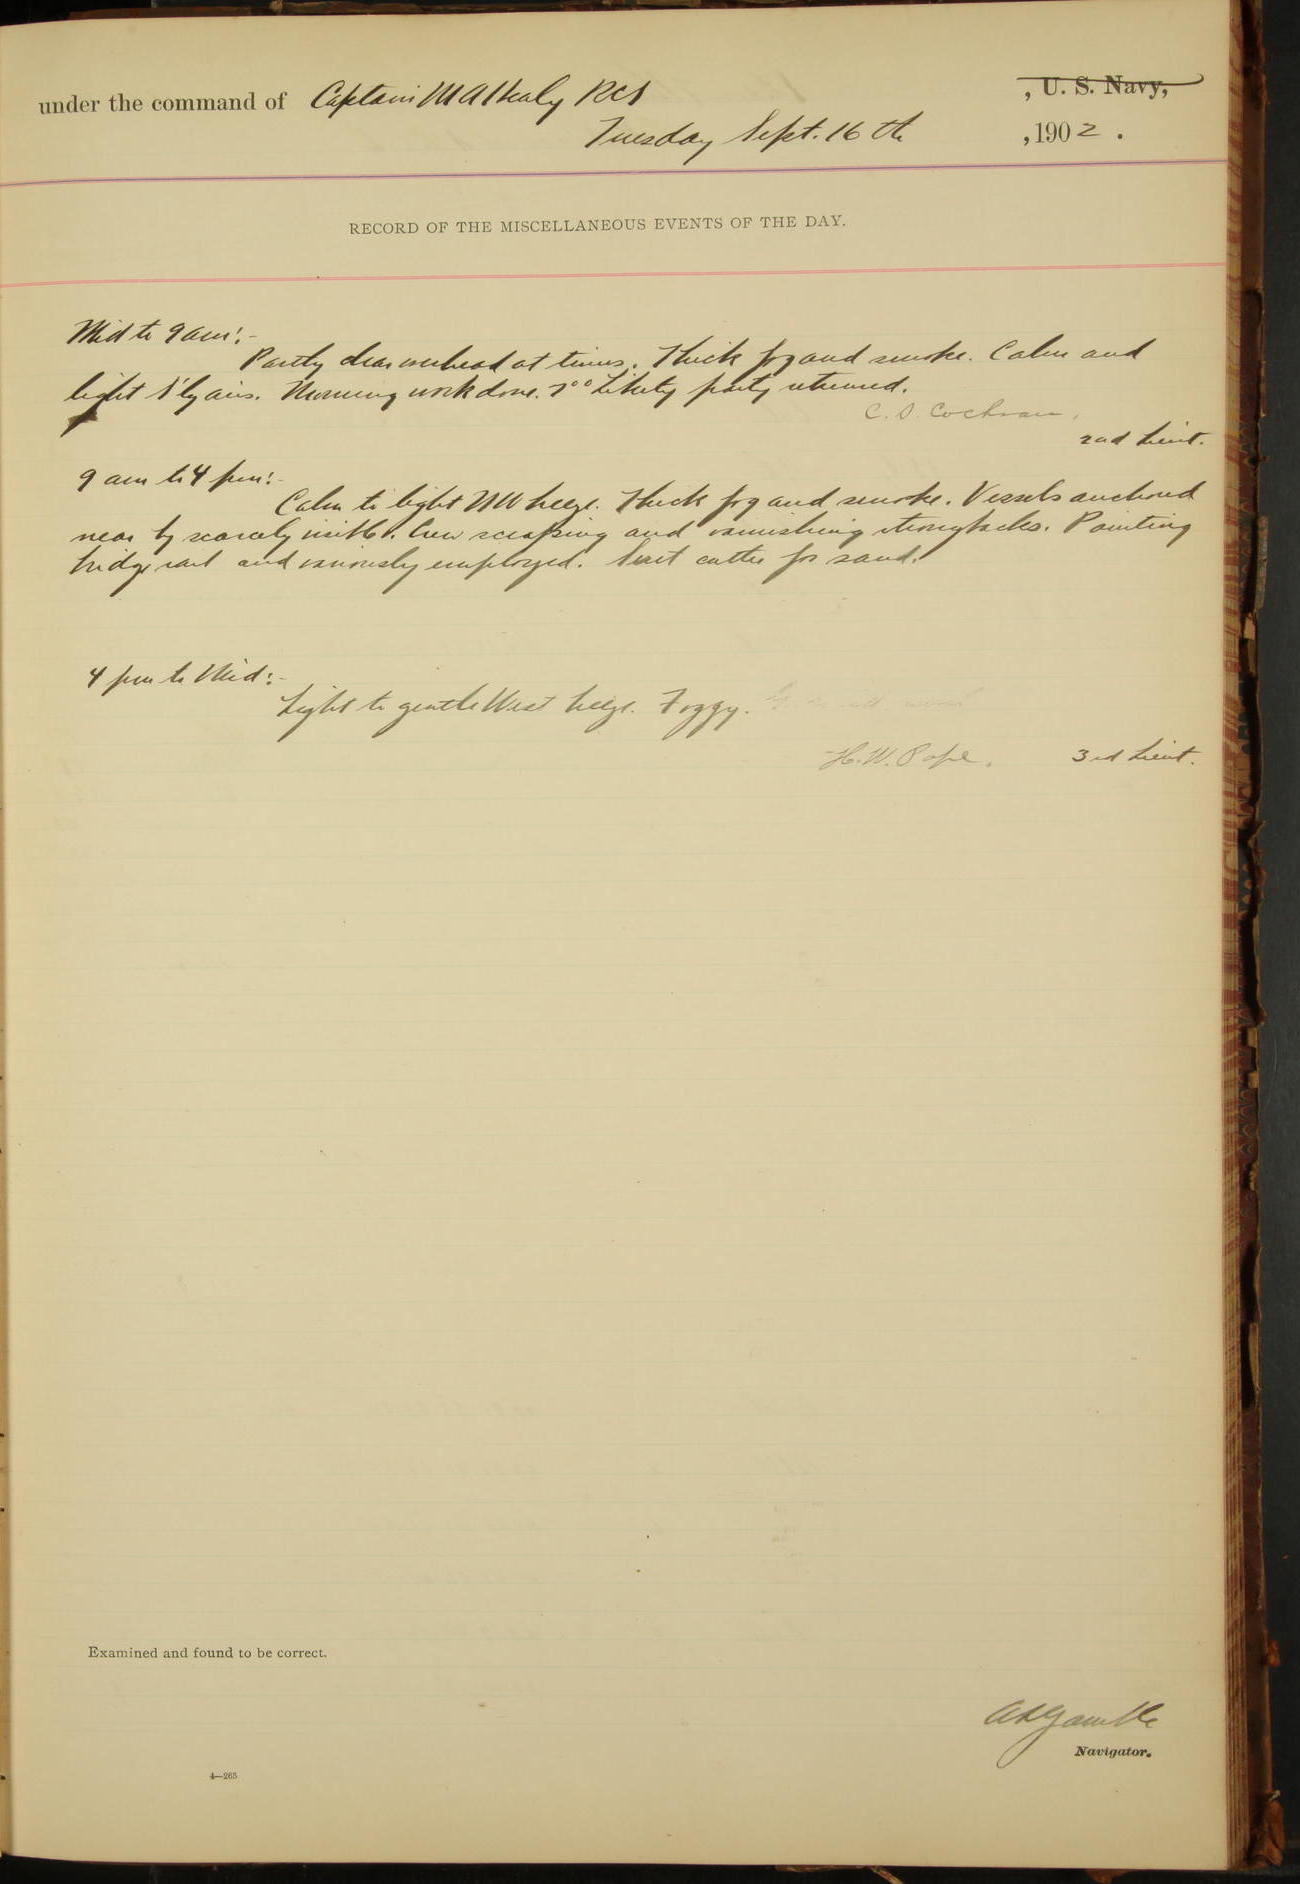 under the command of Captain M A Healy RCS , U. S. Navy,
Tuesday Sept. 16th , 1902.
RECORD OF THE MISCELLANEOUS EVENTS OF THE DAY.
Mid to 9 am:-
Partly clear overhead at times. Thick fog and smoke. Calm and
light S'ly airs. Morning work done. 7°° Liberty party returned.
C. S. Cochran.
2nd Lieut.
9 am to 4 pm:-
Calm to light NW breeze. Thick fog and smoke. Vessels anchored
near by scarcely visible. Crew scraping and varnishing strongbacks. Painting
bridge rail and variously employed. Sent cutter for sand.
4 pm to Mid:-
Light to gentle West breeze. Foggy.
H. W. Pope. 3rd Lieut.
Examined and found to be correct.
A L Gamble
Navigator.
4—265